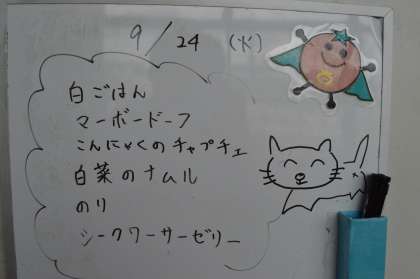 9/24 (火)
白ごはん
マーボードーフ
こんにゃくのチャプチェ
白菜のナムル
のり
シークワーサーゼリー